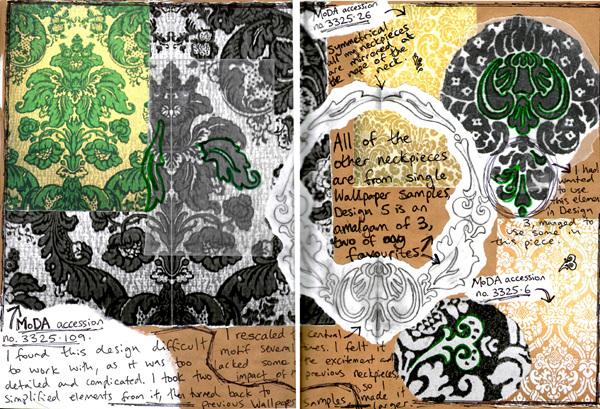 MoDA accession
no. 3325.109.
I found this design difficult
to work with, as it was too
detailed and complicated. I took two
simplified elements from it, then turned back to
previous Wallpapers
I rescaled
motif several
acked some
impact of
MoDA accession
no. 3325.26
Symmetrical
all my neckpieces
are mirrored at
the nape of the
neck.
All of the
other neckpieces
are from single
Wallpaper Samples
Design 5 is an
amalgam of 3,
two of my
favourites
I had
wanted
to use
this element
in Design
3, managed to
use some in
this piece.
MoDA accession
no. 3325.6
central
ones. I felt it
re excitement and
previous neckpieces,
so I
made it
larger.
samples